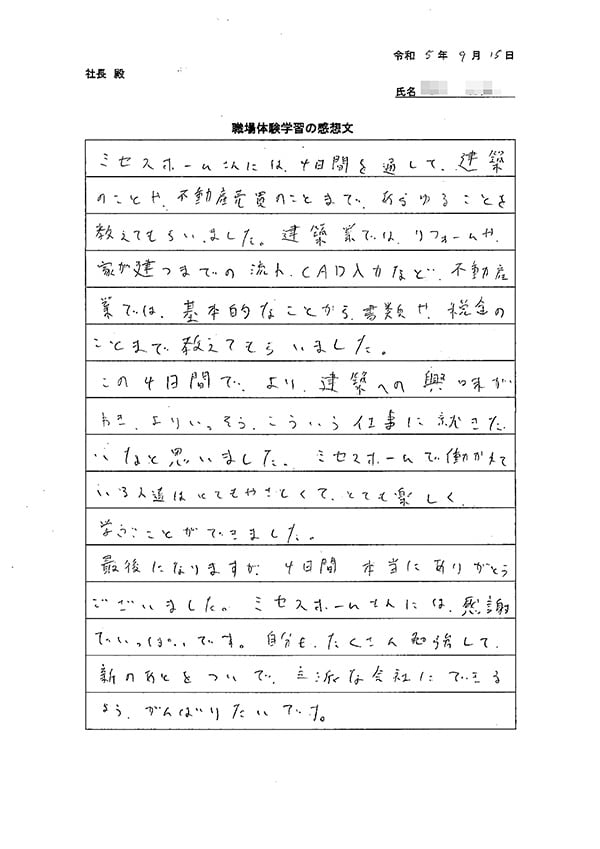 令和 5年 9月 15日
社長 殿
氏名
職場体験学習の感想文
ミセスホームさんには、4日間を通して、建築
のことや、不動産売買のことまで、あらゆることを
教えてもらいました。建築業では、リフォームや、
家が建つまでの流れ、CAD入力など、不動産
業では、基本的なことから、書類や、税金の
ことまで教えてもらいました。
この4日間で、より、建築への興味が
わき、よりいっそう、こういう仕事に就きた
いなと思いました。ミセスホームで働かれて
いる人達はとてもやさしくて、とても楽しく、
学ぶことができました。
最後になりますが、4日間 本当にありがとう
ございました。ミセスホームさんには、感謝
でいっぱいです。自分も、たくさん勉強して、
親のあとをついで、立派な会社にできる
よう、がんばりたいです。